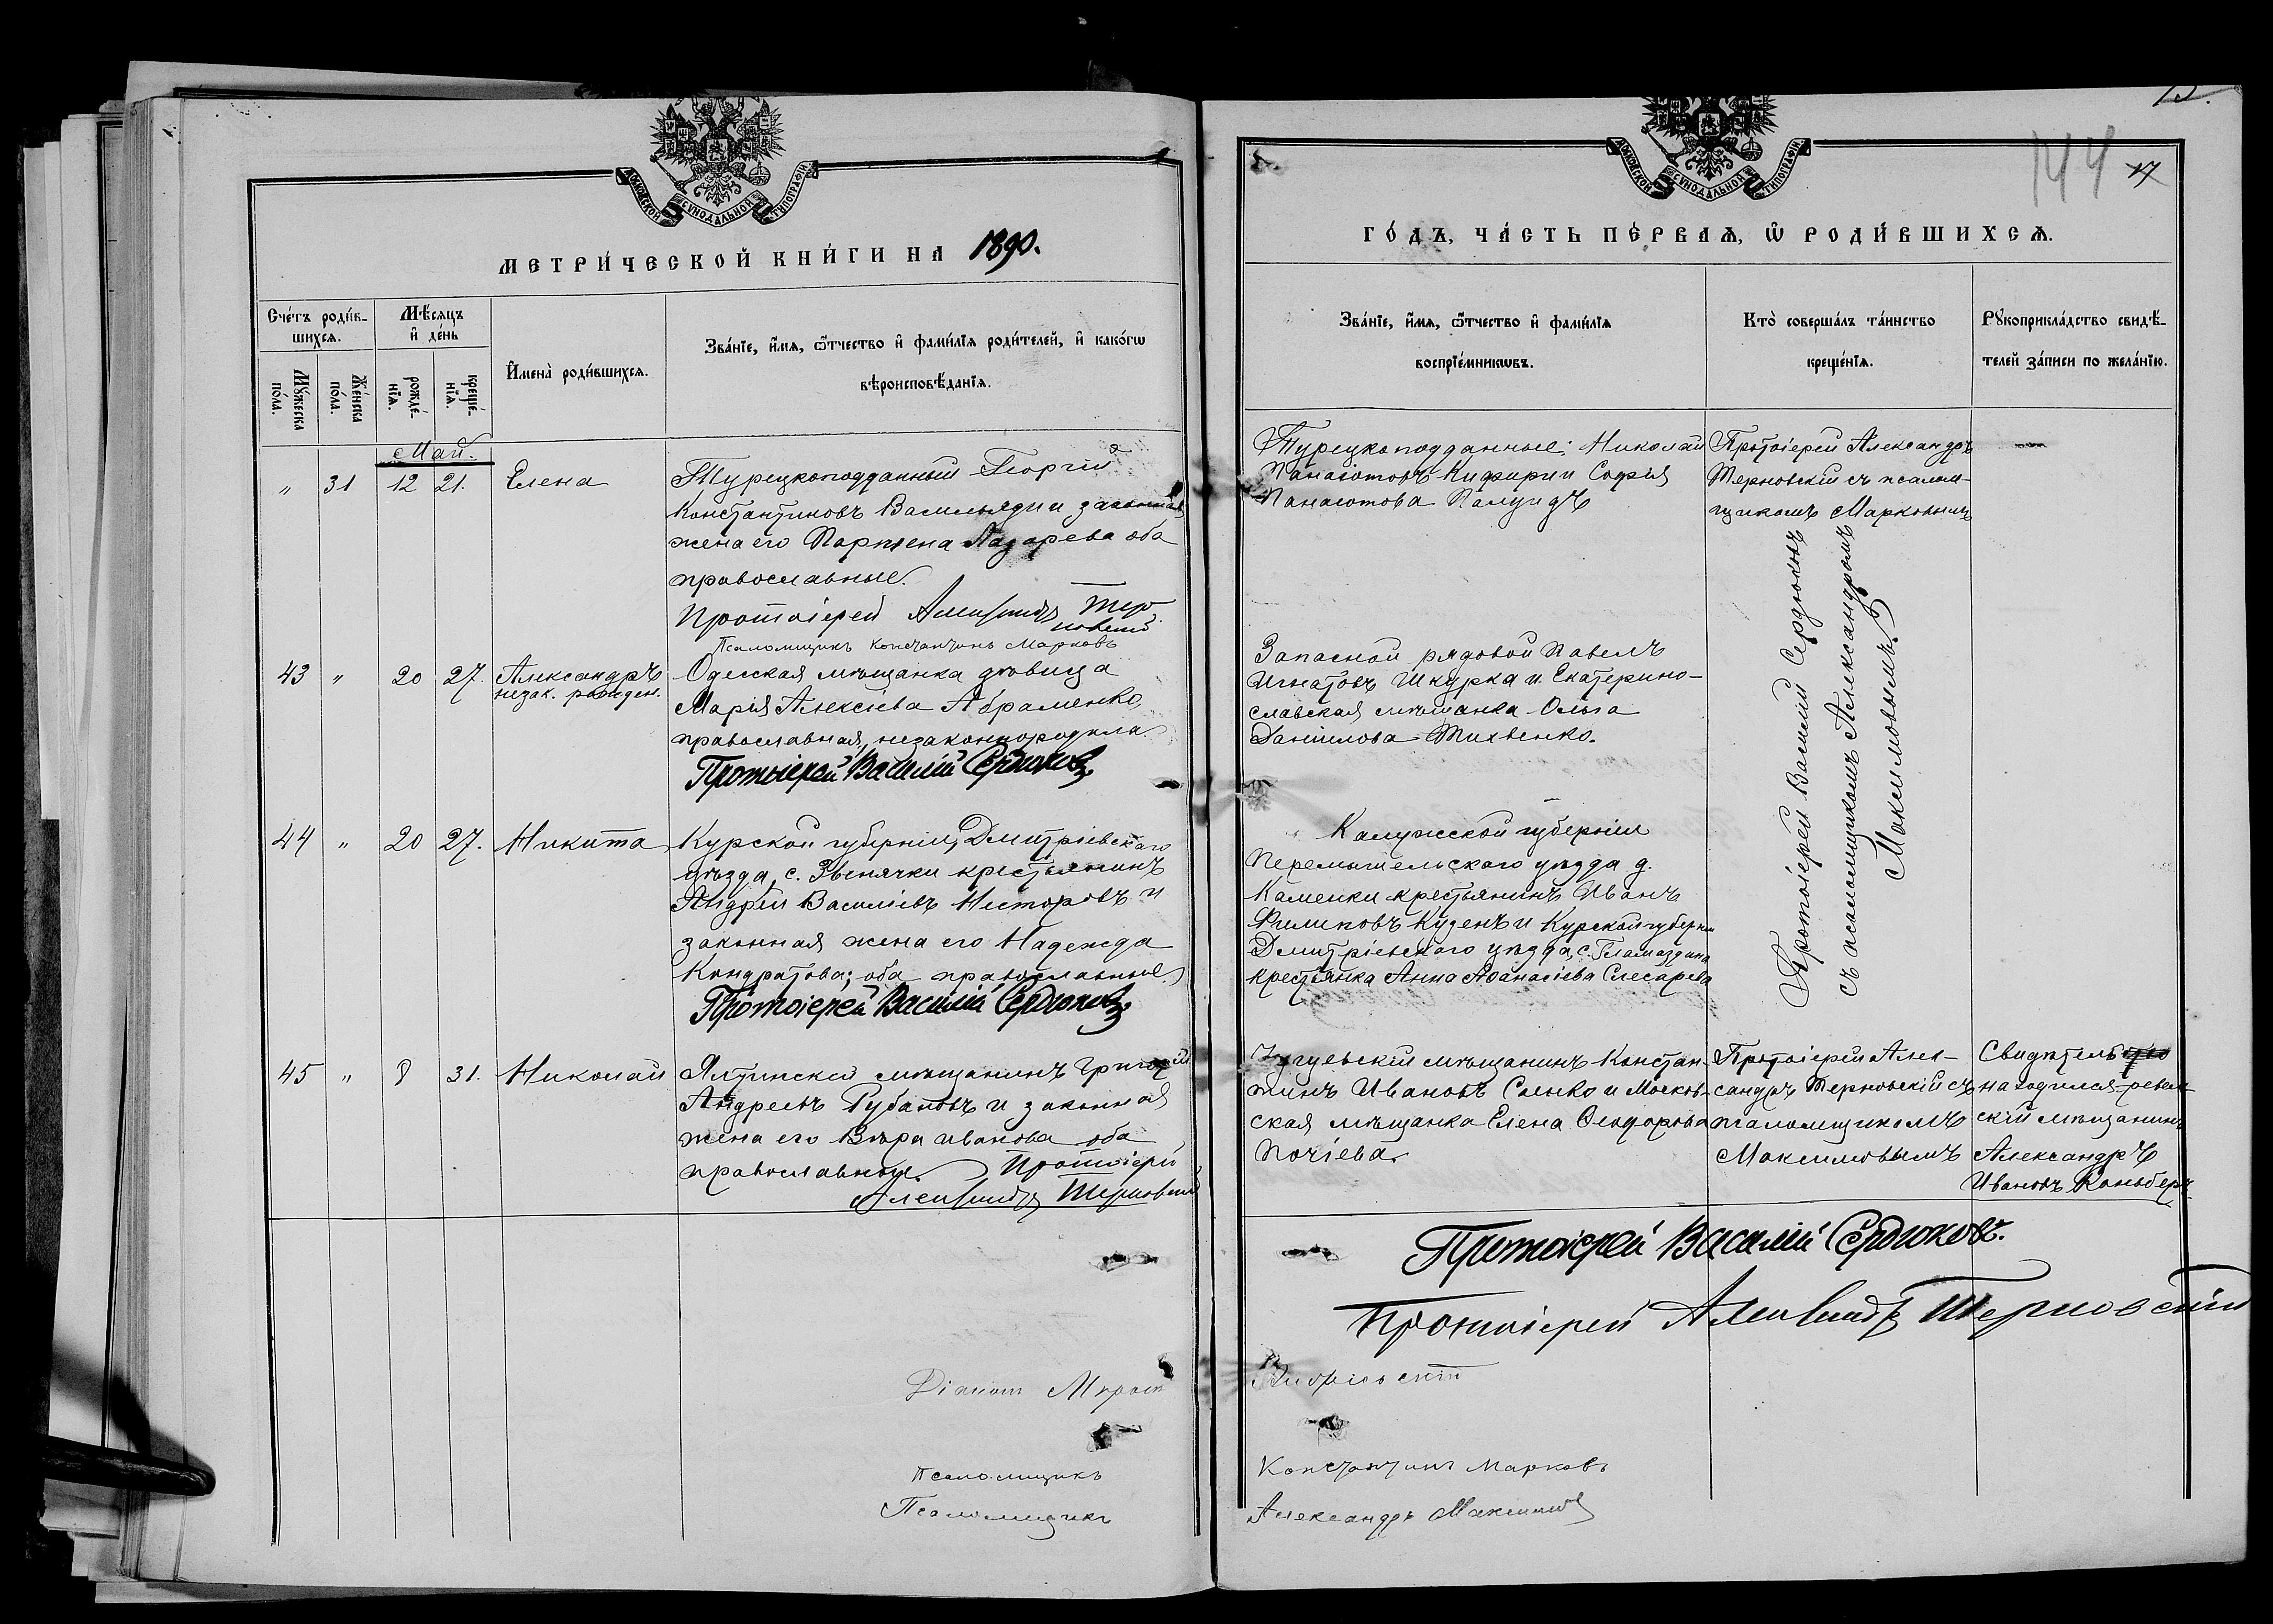 МОСКОВСКОЙ СѴНОДАЛЬНОЙ ТИПОГРАФІИ
МЕТРИ́ЧЕСКОЙ КНИ́ГИ НА 1890.
Сче́тъ роди́в-
шихсѧ.
Мꙋ́жеска по́ла.
Же́нска по́ла.
Мѣ́сѧцъ
и҆ де́нь
рожде́-
нїѧ.
креще́-
нїѧ.
И҆мена̀ роди́вшихсѧ.
Зва́нїе, и҆́мѧ, ѻ҆́тчество и҆ фами́лїѧ роди́телей, и҆ како́гѡ
вѣроисповѣ́данїѧ.
Май.
„ 31 12 21. Елена
Турецкоподданный Георгій
Константиновъ Васильяди и законная
жена его Парѳена Лазарева оба
православные.
Протоіерей Александръ Тер-
новскій
Псаломщикъ Константинъ Марковъ
43 „ 20 27. Александръ
незак. рожден.
Одесская мѣщанка дѣвица
Марія Алексѣева Абраменко,
православная, незаконнородила
Протоіерей Василій Сердюковъ
44 „ 20 27. Никита
Курской губерніи, Дмитріевскаго
уѣзда, с. Звенячки крестьянинъ
Андрей Василіевъ Несторовъ и
законная жена его Надежда
Кондратова; оба православные
Протоіерей Василій Сердюковъ
45 „ 8 31. Николай
Ялтинскій мѣщанинъ Григорій
Андреевъ Губановъ и законная
жена его Вѣра Иванова оба
православные. Протоіерей
Александръ Терновскій
Діаконъ
Псаломщикъ
Псаломщикъ
МОСКОВСКОЙ СѴНОДАЛЬНОЙ ТИПОГРАФІИ
144
17
ГО́ДЪ, ЧА́СТЬ ПЕ́РВАѦ, Ѡ РОДИ́ВШИХСѦ.
Зва́нїе, и҆́мѧ, ѻ҆́тчество и҆ фами́лїѧ
воспрїе́мникѡвъ.
Кто̀ соверша́лъ та́инство
креще́нїѧ.
Рꙋкоприкла́дство свидѣ́-
телей за́писи по жела́нїю.
Турецкоподданные: Николай
Панаіотовъ Кифири и Софія
Панаіотова Палуидъ
Протоіерей Александръ
Терновскій съ псалом-
щикомъ Марковымъ
Запасной рядовой Павелъ
Игнатовъ Шкурка и Екатерино-
славская мѣщанка Ольга
Даніилова Тихвенко.
Протоіерей Василій Сердюковъ
съ псаломщикомъ Александромъ
Максимовымъ.
Калужской губерніи
Перемышельскаго уѣзда д.
Каменки крестьянинъ Иванъ
Филиповъ Куденъ и Курской губерніи
Дмитріевскаго уѣзда, с. Гламаздина
крестьянка Анна Аѳанасіева Слесарева
Чугуевскій мѣщанинъ Констан-
тинъ Ивановъ Саенко и Москов-
ская мѣщанка Елена Ѳеодорова
Почіева.
Протоіерей Алек-
сандръ Терновскій съ
псаломщикомъ
Максимовымъ
Свидѣтель
находился ревель-
скій мѣщанинъ
Александръ
Ивановъ
Протоіерей Василій Сердюковъ.
Протоіерей Александръ Терновскій
Константинъ Марковъ
Александръ Максимовъ